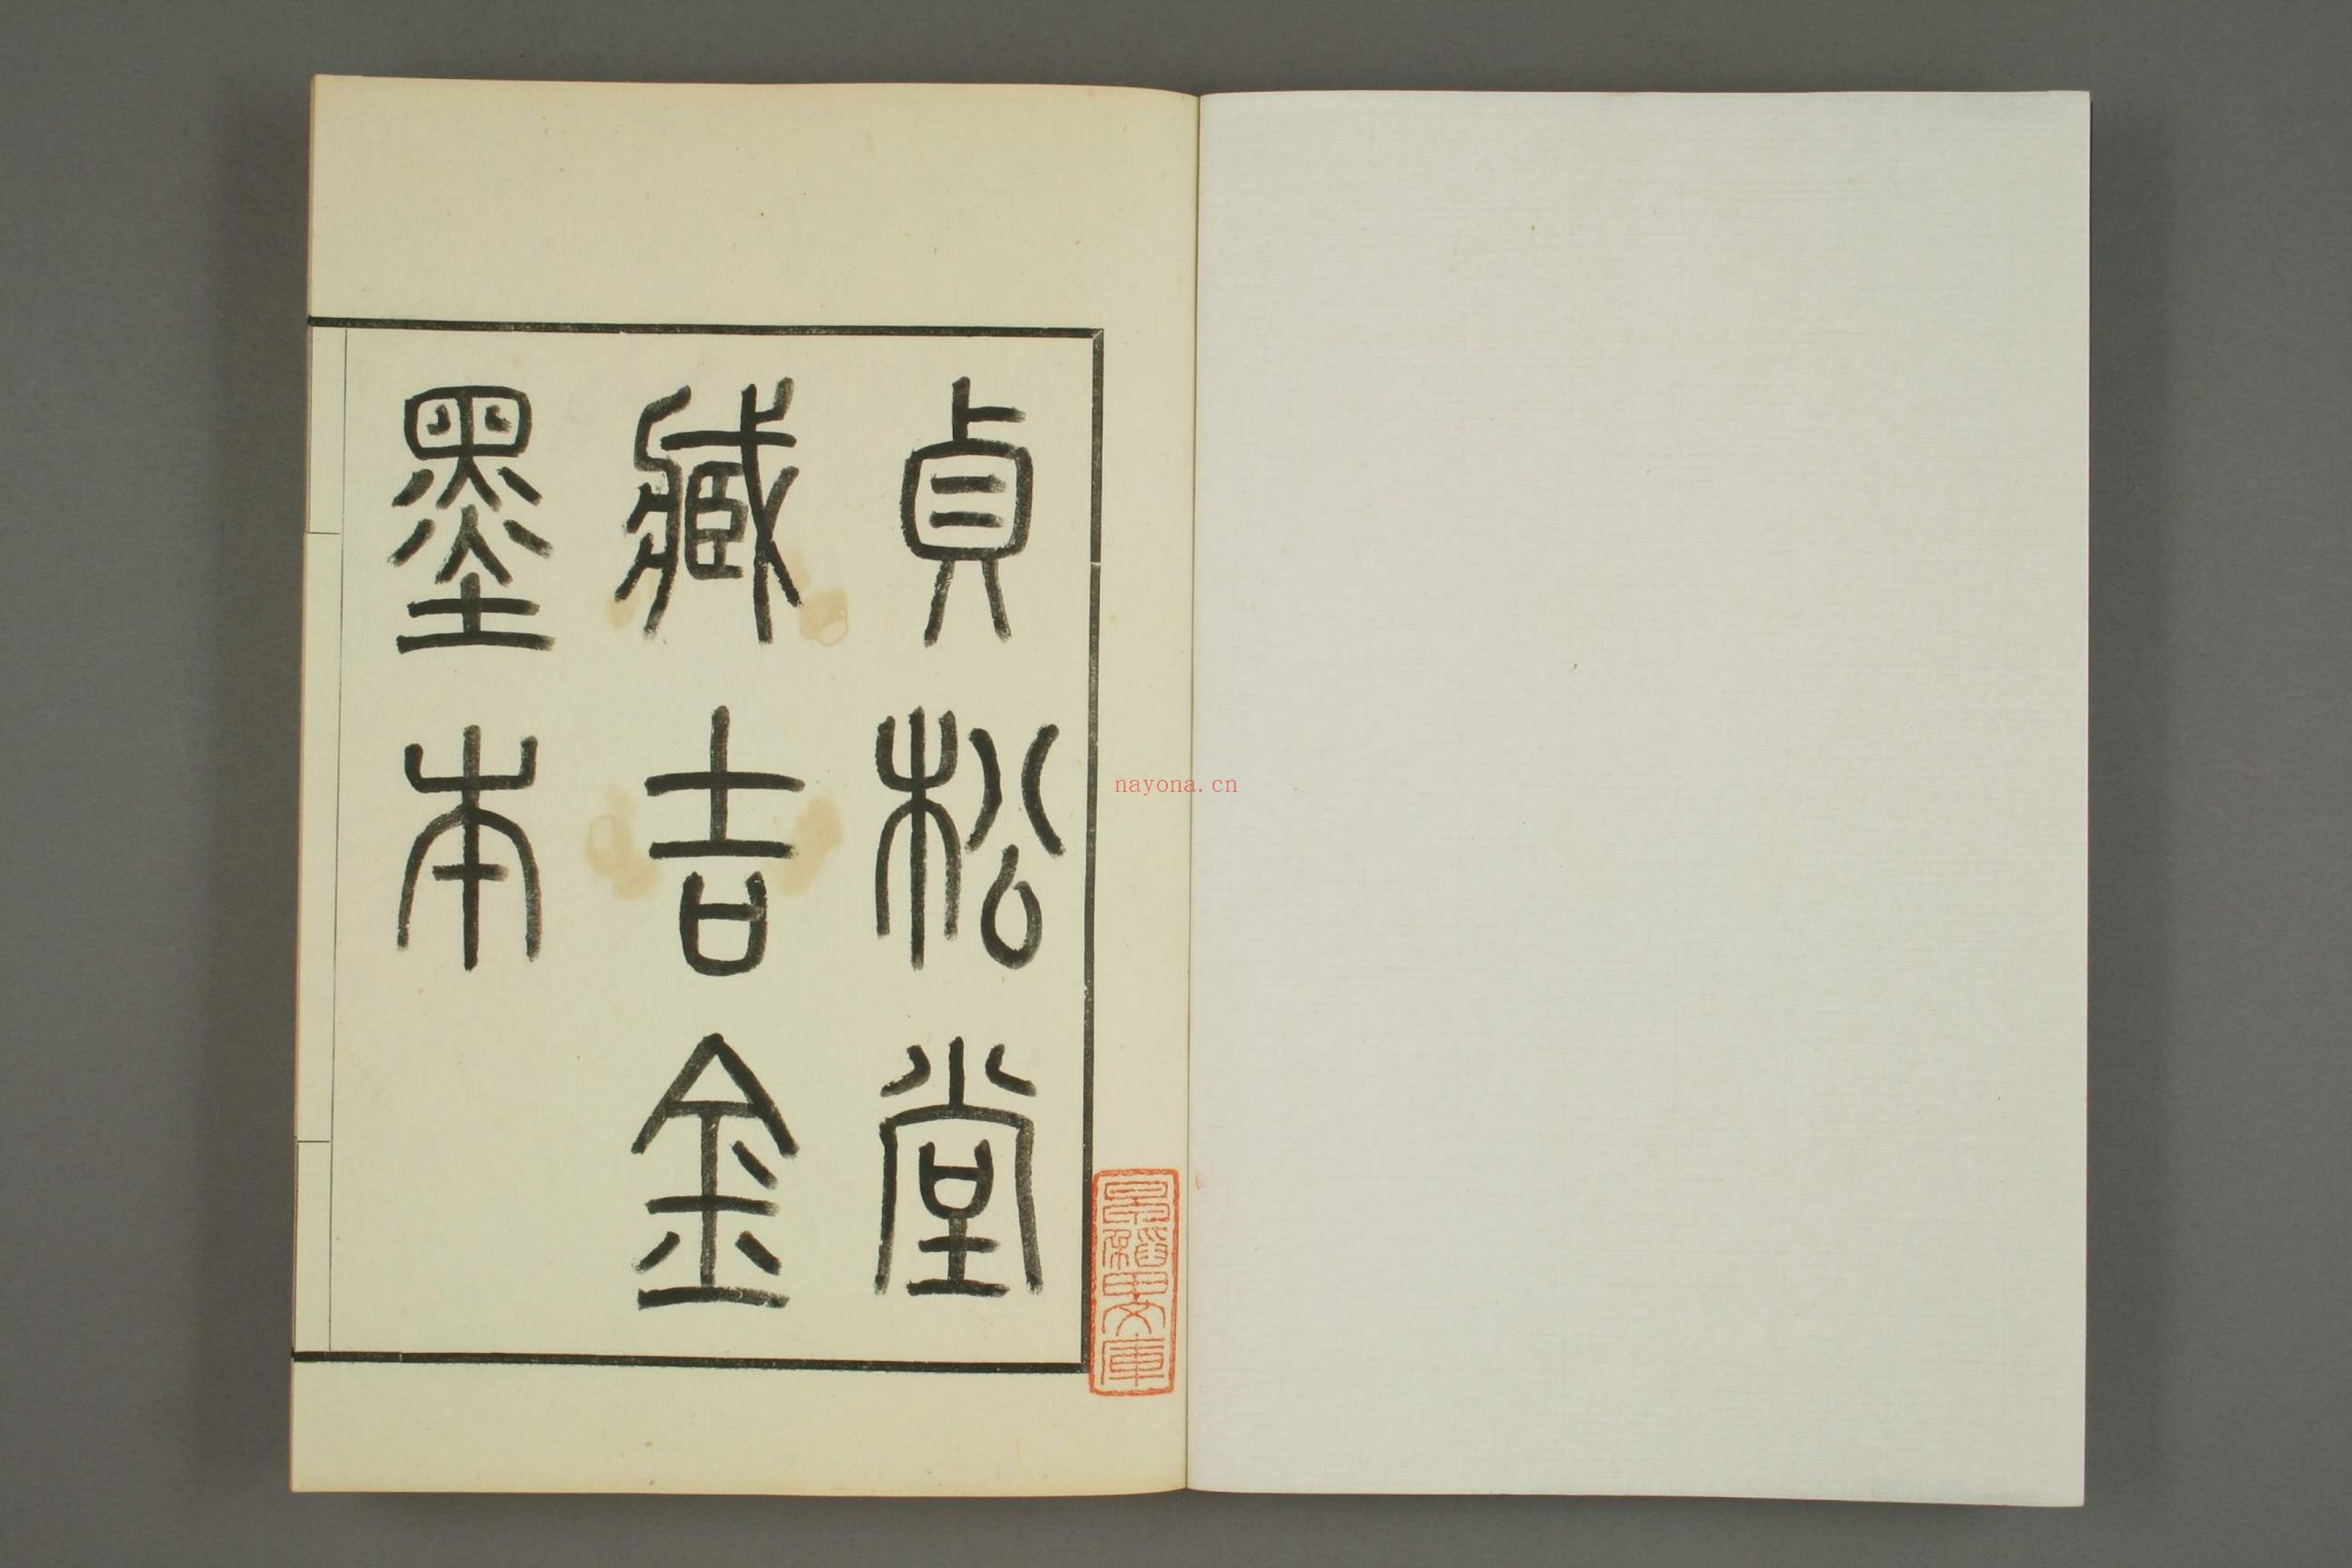 貞松堂
藏吉金
墨本
nayona.cn